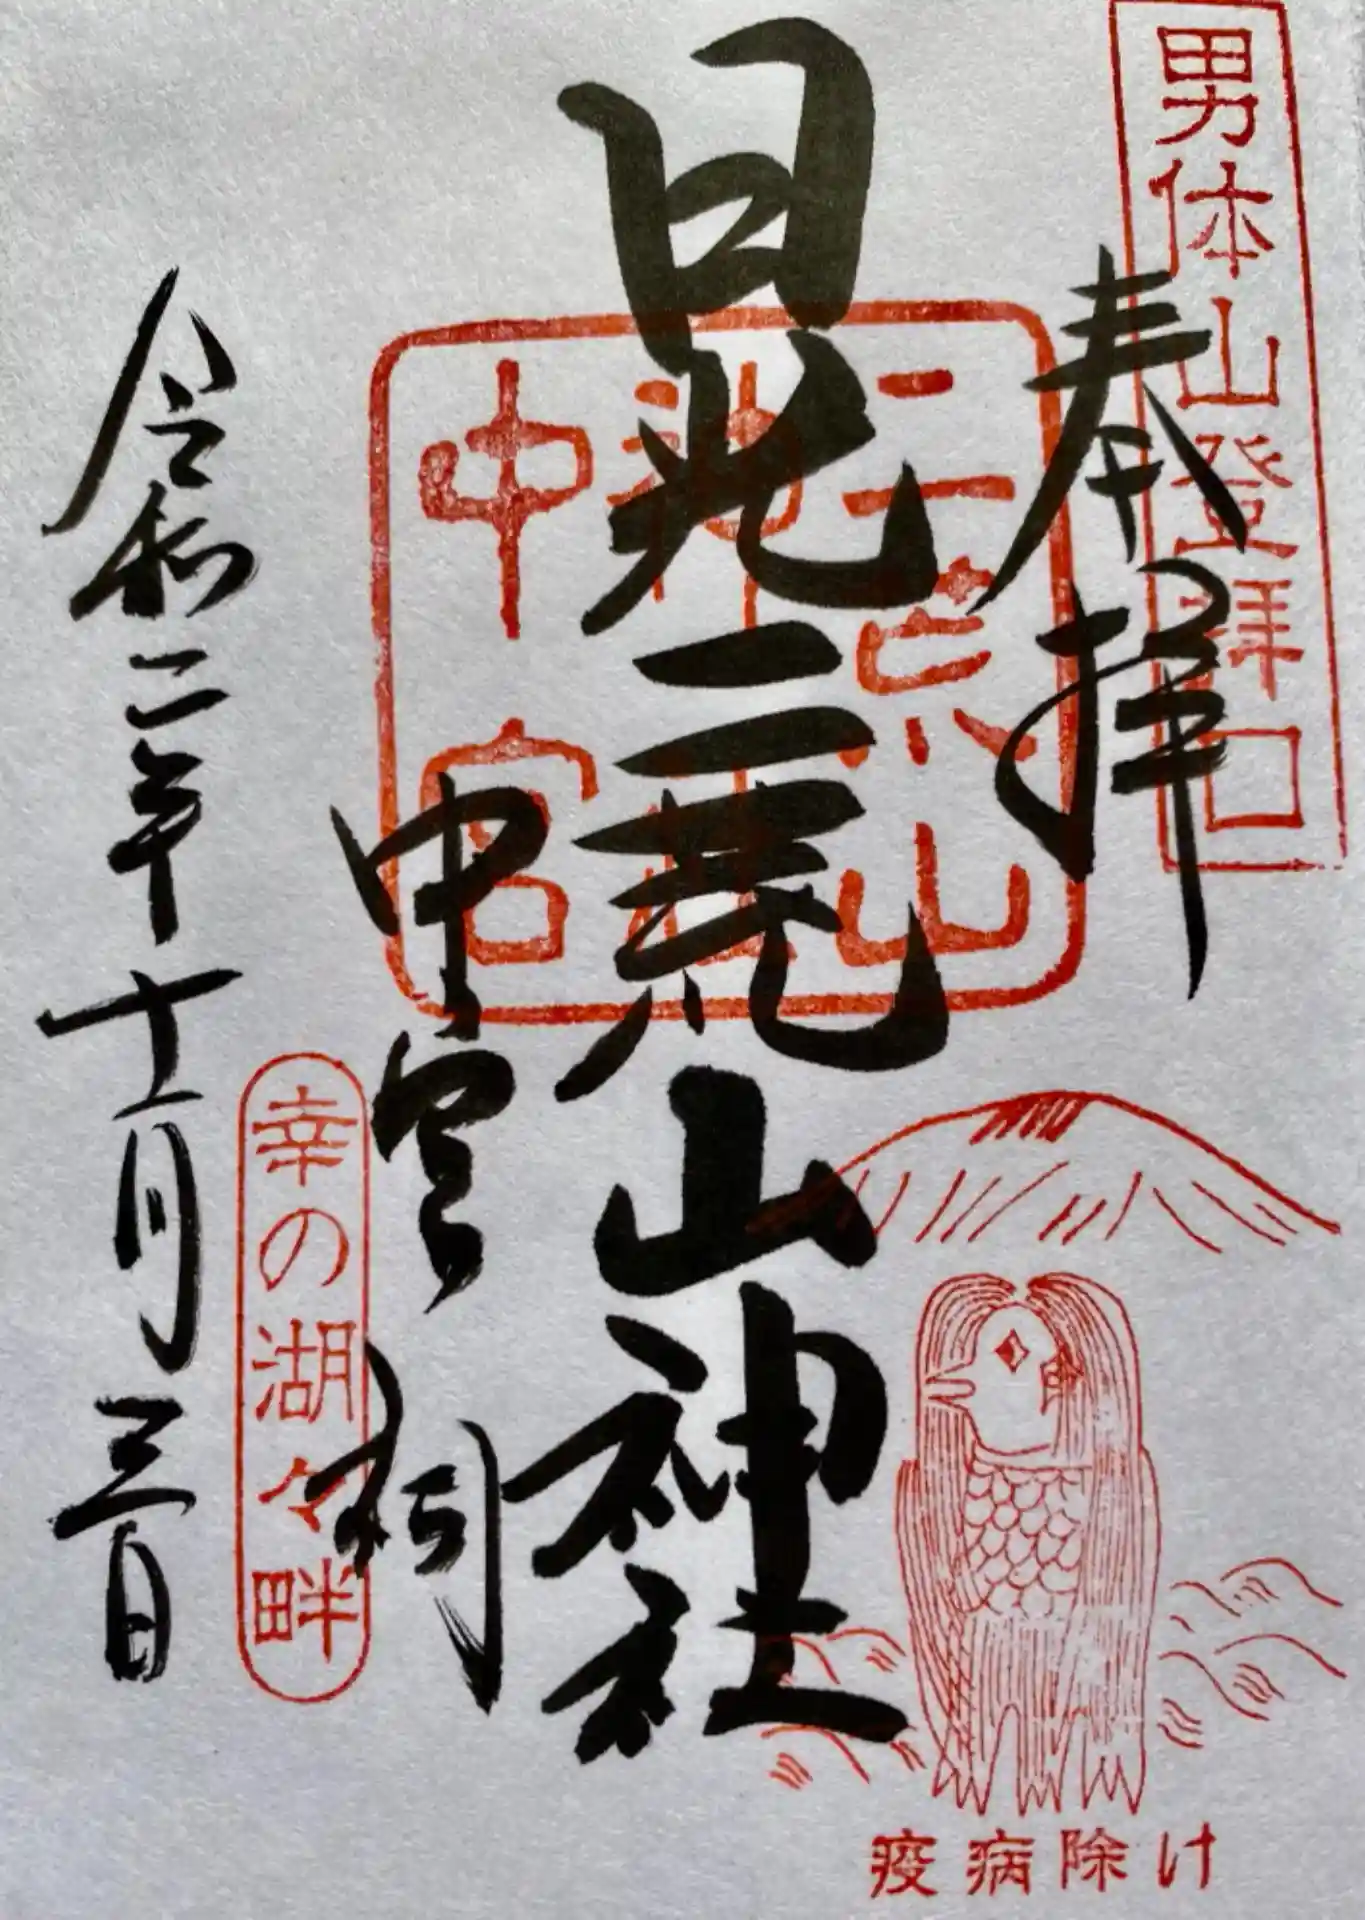 男体山登拝口
奉拝
日光二荒山神社
二荒山
神社
中宮
中宮祠
幸の湖々畔
令和二年十一月三日
疫病除け